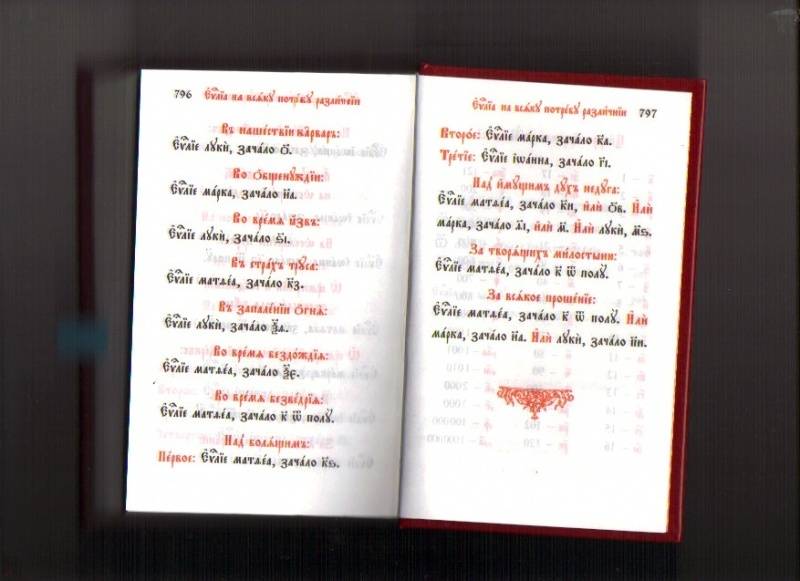 796 Єѵⷢ҇лїа на всѧ́кꙋ потре́бꙋ разли̑чнїи
Въ наше́ствїи ва̑рваръ:
Єѵⷢ҇лїе лꙋкѝ, зача́ло о҃.
Во ѻ҆бщенꙋ́ждїи:
Єѵⷢ҇лїе ма́рка, зача́ло н҃а.
Во вре́мѧ ꙗ҆́звъ:
Єѵⷢ҇лїе лꙋкѝ, зача́ло ѕ҃і.
Въ стра́хъ трꙋ́са:
Єѵⷢ҇лїе матѳе́а, зача́ло к҃з.
Въ запале́нїи ѻ҆гнѧ̀:
Єѵⷢ҇лїе лꙋкѝ, зача́ло ѯ҃а.
Во вре́мѧ бездо́ждїѧ:
Єѵⷢ҇лїе матѳе́а, зача́ло ѯ҃є.
Во вре́мѧ безве́дрїѧ:
Єѵⷢ҇лїе матѳе́а, зача́ло к҃ ѿ полꙋ̀.
Над̾ болѧ́щимъ:
Пе́рвое: Єѵⷢ҇лїе матѳе́а, зача́ло к҃ѕ.
Єѵⷢ҇лїа на всѧ́кꙋ потре́бꙋ разли̑чнїи 797
Второ́е: Єѵⷢ҇лїе ма́рка, зача́ло к҃а.
Тре́тїе: Єѵⷢ҇лїе і҆ѡа́нна, зача́ло г҃і.
Над̾ и҆мꙋ́щимъ дꙋ́хъ недꙋ́га:
Єѵⷢ҇лїе матѳе́а, зача́ло к҃и, и҆лѝ, о҃в. И҆лѝ
ма́рка, зача́ло а҃і, и҆лѝ, м҃. И҆лѝ лꙋкѝ, м҃ѕ.
За творѧ́щихъ ми́лостыни:
Єѵⷢ҇лїе матѳе́а, зача́ло к҃ ѿ полꙋ̀.
За всѧ́кое проше́нїе:
Єѵⷢ҇лїе матѳе́а, зача́ло к҃ ѿ полꙋ̀. И҆лѝ
ма́рка, зача́ло н҃а. И҆лѝ лꙋкѝ, зача́ло н҃и.